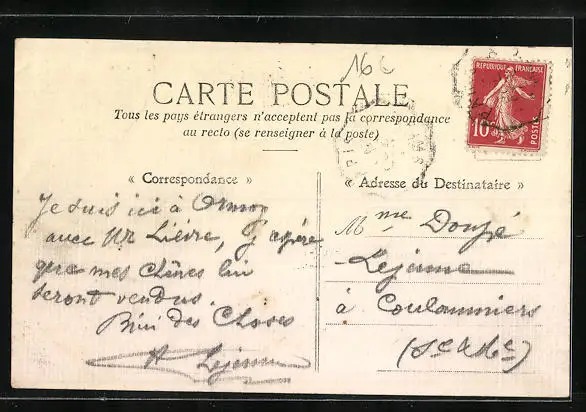 16
CARTE POSTALE
Tous les pays étrangers n'acceptent pas la correspondance
au recto (se renseigner à la poste)
REPUBLIQUE FRANÇAISE
10c
POSTES
« Correspondance »
Je suis ici à
avec Mr Lièvre, j'espère
que mes Chênes lui
seront vendus.
Bien des Choses
A Lejeune
« Adresse du Destinataire »
Mme
Lejeune
à Coulommiers
(Se & Me)